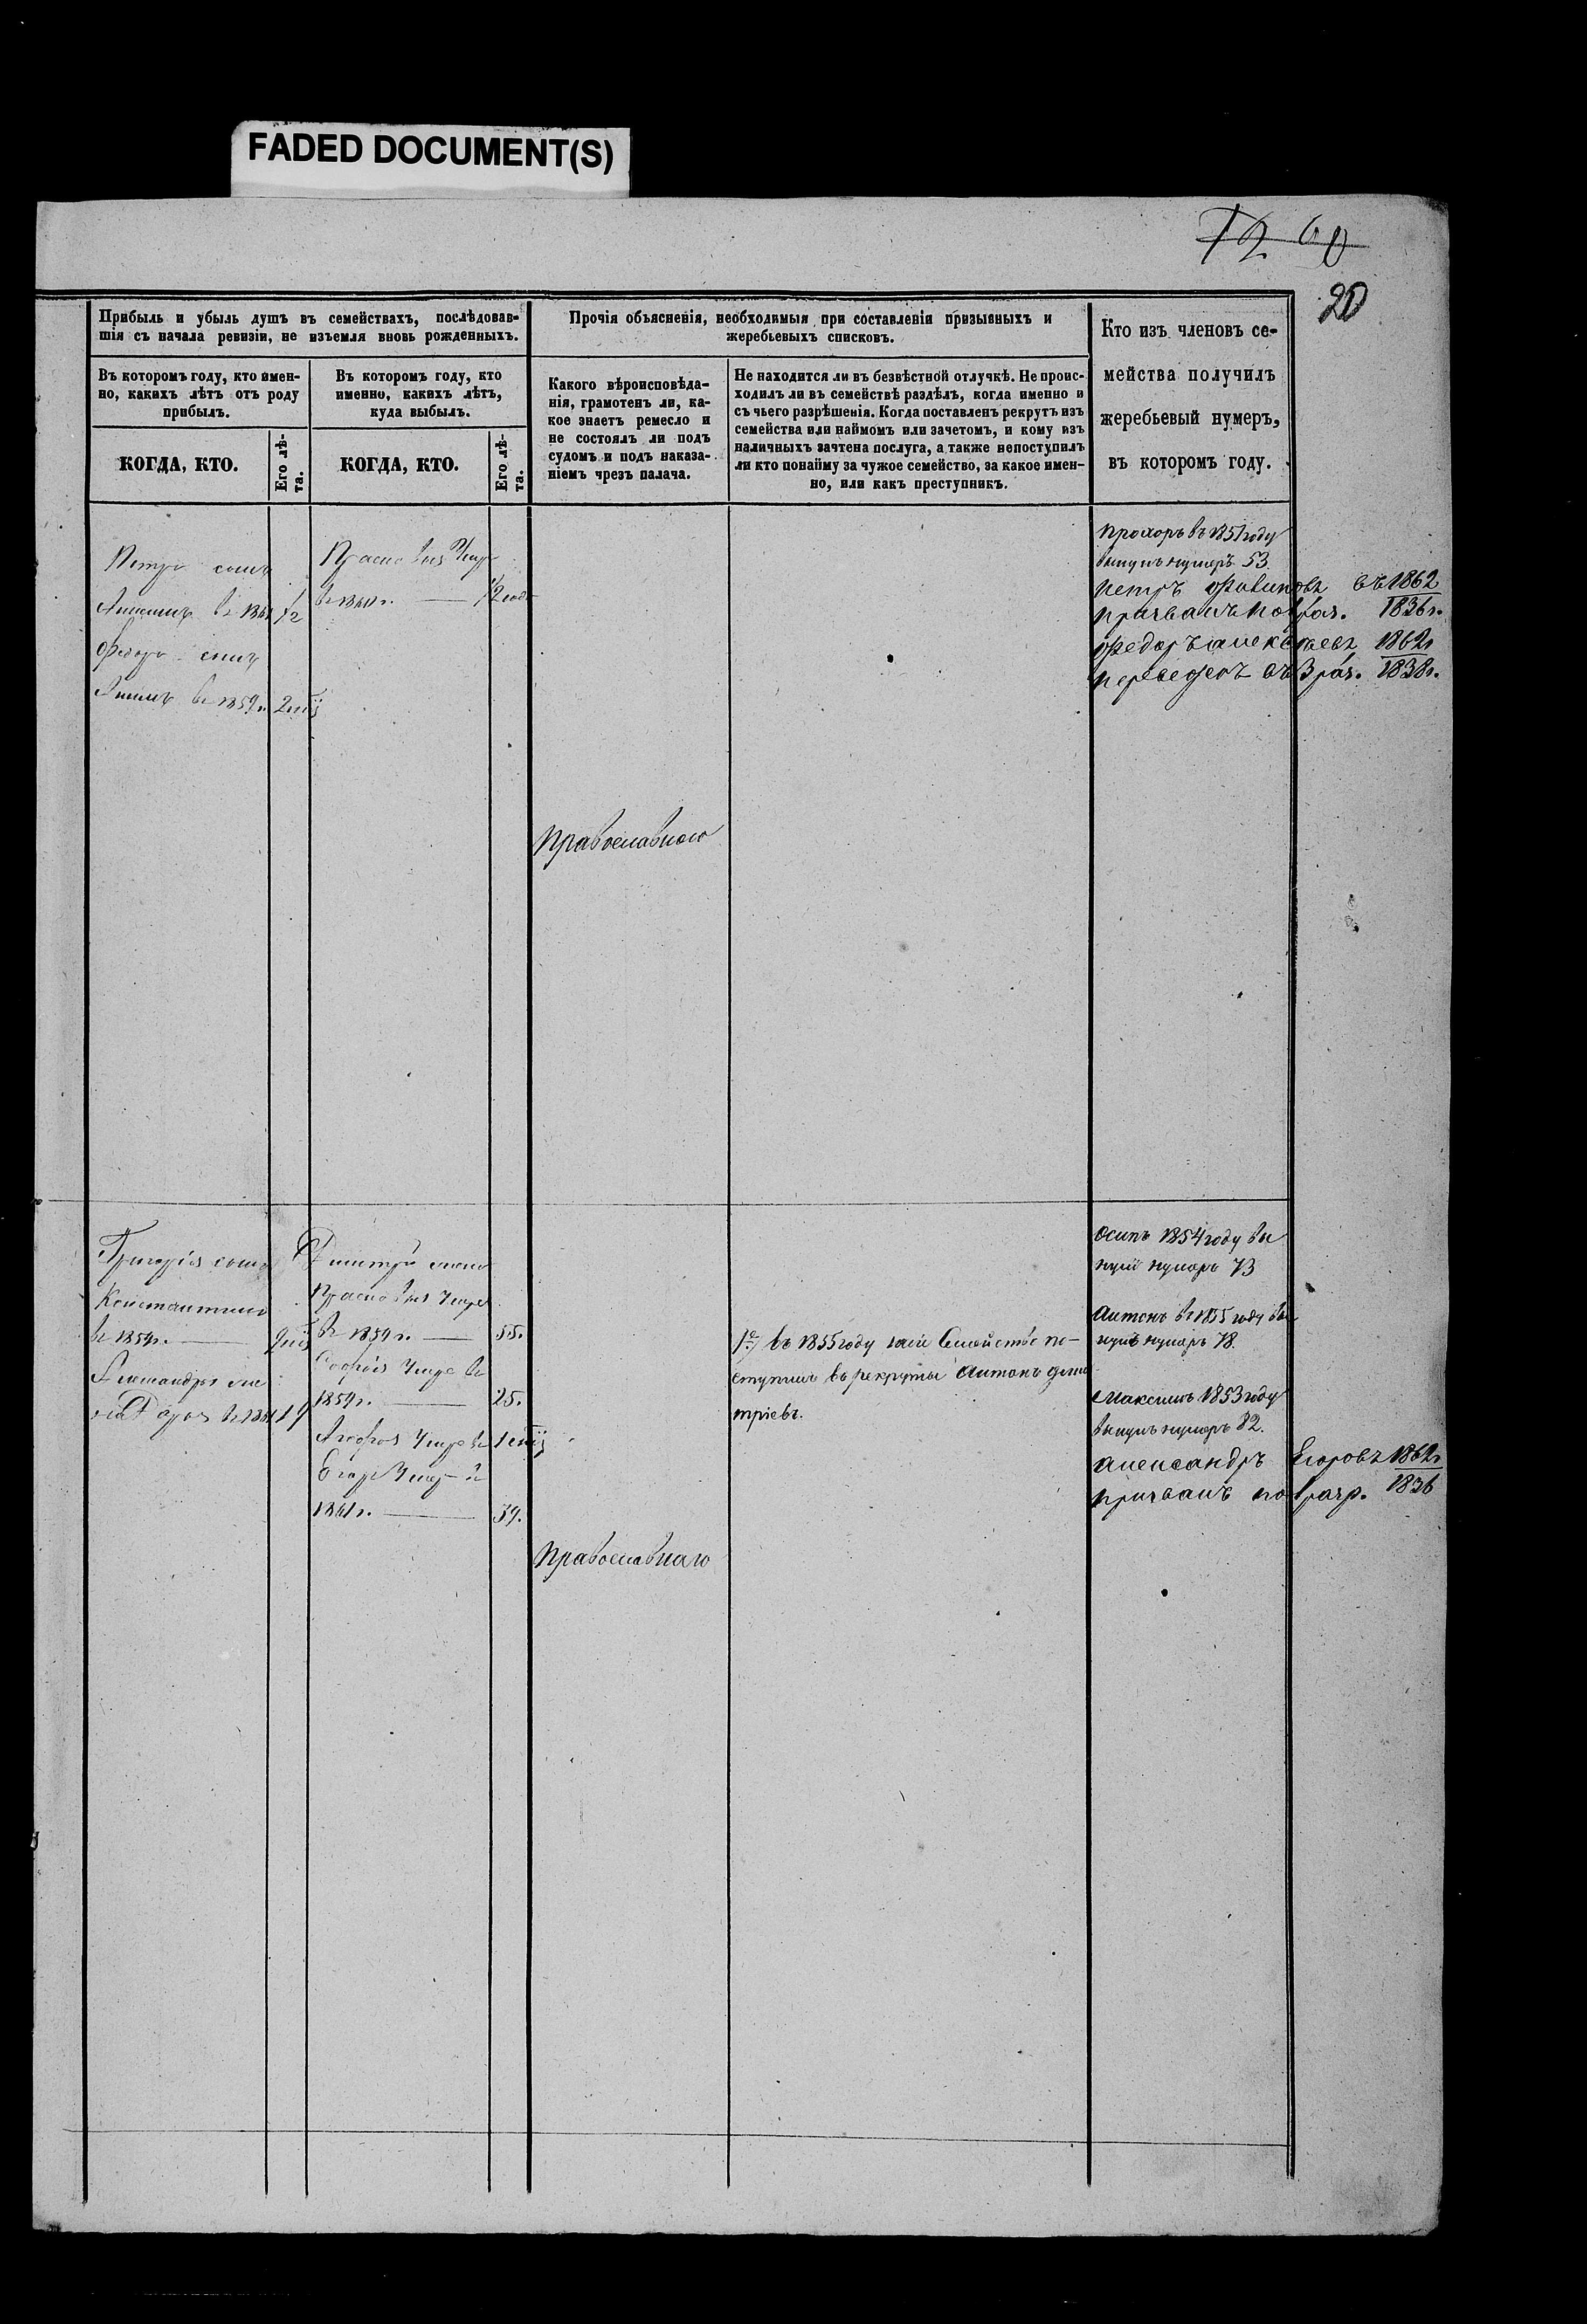 FADED DOCUMENT(S)
72 60
20
Прибыль и убыль душъ въ семействахъ, послѣдовав-
шія съ начала ревизіи, не изъемля вновь рожденныхъ.
Въ которомъ году, кто имен-
но, какихъ лѣтъ отъ роду
прибылъ.
КОГДА, КТО.
Его лѣ-
та.
Въ которомъ году, кто
именно, какихъ лѣтъ,
куда выбылъ.
КОГДА, КТО.
Его лѣ-
та.
Прочія объясненія, необходимыя при составленіи призывныхъ и
жеребьевыхъ списковъ.
Какого вѣроисповѣда-
нія, грамотенъ ли, ка-
кое знаетъ ремесло и
не состоялъ ли подъ
судомъ и подъ наказа-
ніемъ чрезъ палача.
Не находится ли въ безвѣстной отлучкѣ. Не проис-
ходилъ ли въ семействѣ раздѣлъ, когда именно и
съ чьего разрѣшенія. Когда поставленъ рекрутъ изъ
семейства или наймомъ или зачетомъ, и кому изъ
наличныхъ зачтена послуга, а также непоступилъ
ли кто понайму за чужое семейство, за какое имен-
но, или какъ преступникъ.
Кто изъ членовъ се-
мейства получилъ
жеребьевый нумеръ,
въ которомъ году.
Петра сынъ
въ 1861 1/2
Федора сынъ
въ 1859 г. 2
въ 1860 г. — 1/2 года
Православнаго
Прохоръ въ 1851 году
вынулъ нумеръ 53
Петръ въ 1862
призванъ по 1 раз. 1836 г.
Федоръ Алексѣевъ 1862 г
переведенъ въ 3 раз. 1838 г.
Григорія сынъ
Константинъ
въ 1859 г. —
Александръ
Дмитрій
въ 1859 г. — 55.
1859 г. — 25.
Егоръ
1861 г. — 39.
Православнаго
1е) въ 1855 году изъ Семейства по-
ступилъ въ рекруты Антонъ Дми
тріевъ.
Осипъ 1854 году вы
нулъ нумеръ 73
Антонъ въ 1855 году вы
нулъ нумеръ 78.
Максимъ 1853 году
вынулъ нумеръ 82.
Александръ Егоровъ 1862 г
призванъ по 1 разр. 1836